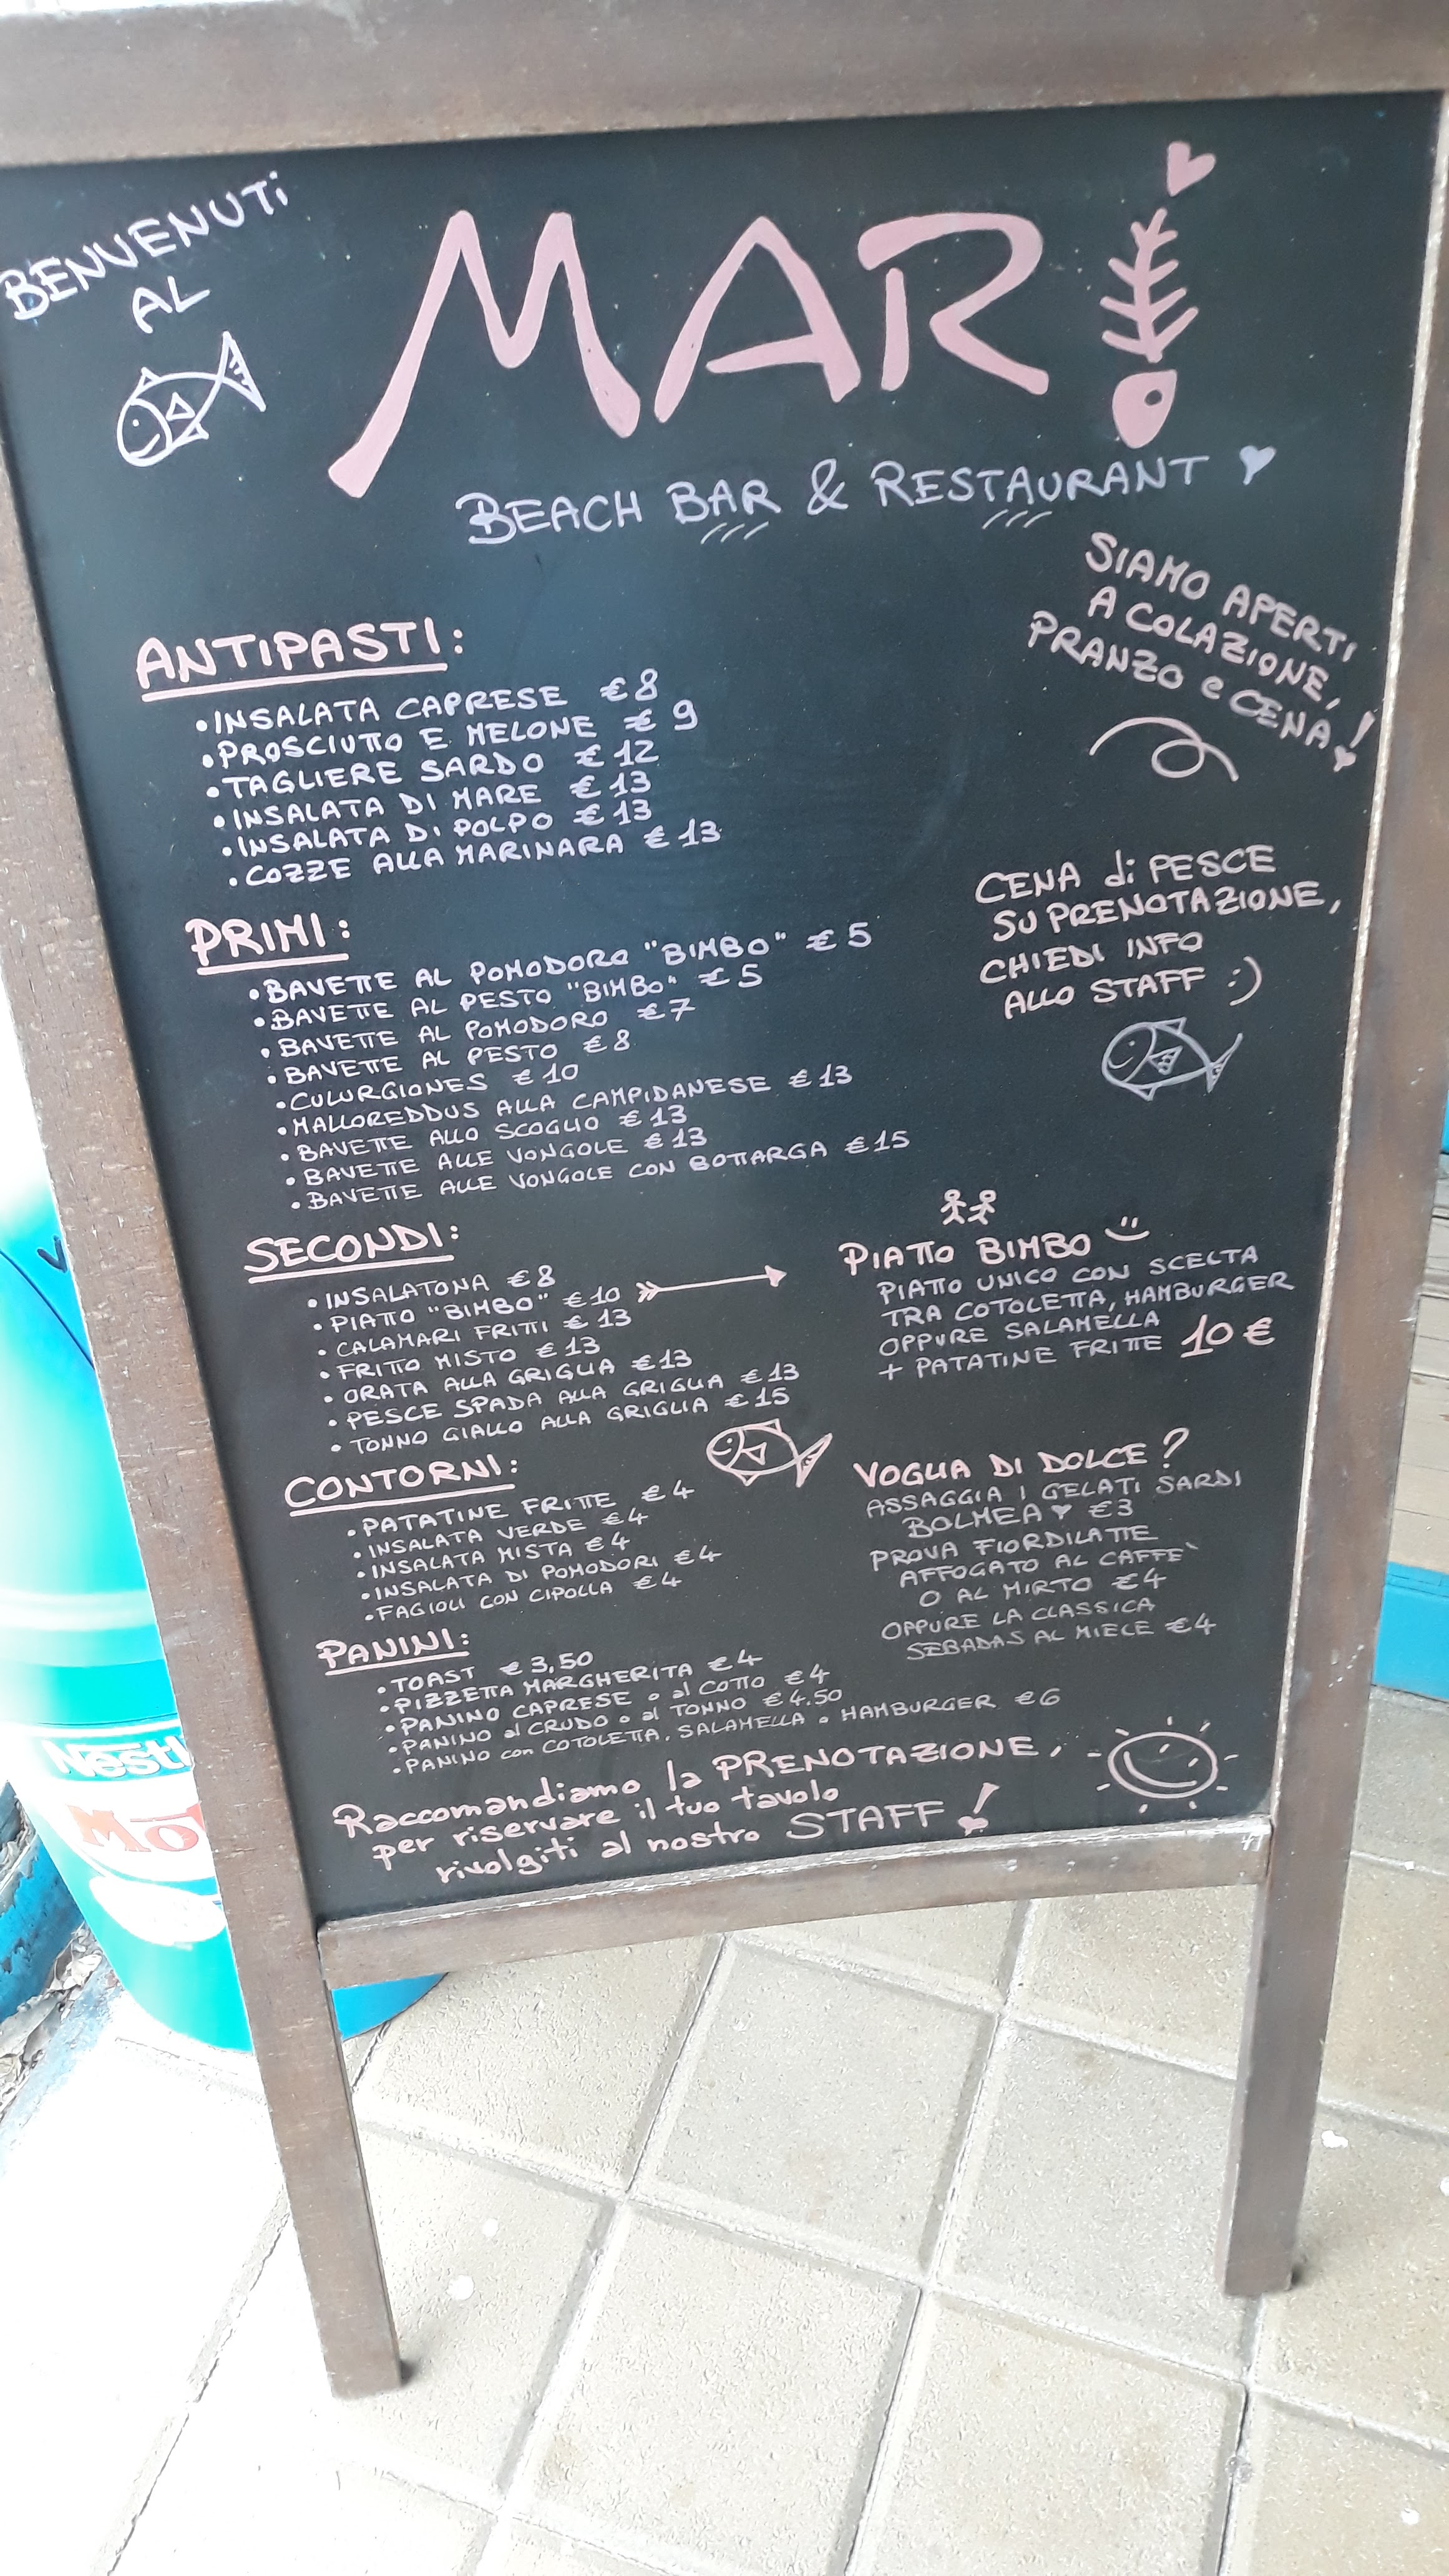 BENVENUTi
AL
MAR
BEACH BAR & RESTAURANT
SIAMO APERTI
A COLAZIONE,
PRANZO e CENA!
ANTIPASTI:
•INSALATA CAPRESE €8
•PROSCIUTTO E MELONE € 9
•TAGLIERE SARDO € 12
•INSALATA DI MARE €13
•INSALATA Di POLPO €13
•COZZE ALLA MARINARA €13
CENA di PESCE
SU PRENOTAZIONE,
CHIEDI INFO
ALLO STAFF :)
PRIMI:
•BAVETTE AL POMODORO "BIMBO" €5
•BAVETTE AL PESTO "BIMBO" €5
•BAVETTE AL POMODORO €7
•BAVETTE AL PESTO €8
•CULURGIONES €10
•MALLOREDDUS ALLA CAMPIDANESE €13
•BAVETTE ALLO SCOGLIO €13
•BAVETTE ALLE VONGOLE €13
•BAVETTE ALLE VONGOLE CON BOTTARGA €15
SECONDI:
•INSALATONA €8
•PIATTO "BIMBO" €10
•CALAMARI FRITTI €13
•FRITTO MISTO €13
•ORATA ALLA GRIGLIA €13
•PESCE SPADA ALLA GRIGLIA €13
•TONNO GIALLO ALLA GRIGLIA €15
PIATTO BIMBO
PIATTO UNICO CON SCELTA
TRA COTOLETTA, HAMBURGER
OPPURE SALAMELLA
+ PATATINE FRITTE 10€
CONTORNI:
•PATATINE FRITTE €4
•INSALATA VERDE €4
•INSALATA MISTA €4
•INSALATA DI POMODORI €4
•FAGIOLI CON CIPOLLA €4
VOGLIA DI DOLCE?
ASSAGGIA I GELATI SARDI
BOLMEA ♥ €3
PROVA FIORDILATTE
AFFOGATO AL CAFFE`
O AL MIRTO €4
OPPURE LA CLASSICA
SEBADAS AL MIELE €4
PANINI:
•TOAST €3,50
•PIZZETTA MARGHERITA €4
•PANINO CAPRESE o al COTTO €4
•PANINO al CRUDO o al TONNO €4.50
•PANINO con COTOLETTA, SALAMELLA o HAMBURGER €6
Raccomandiamo la PRENOTAZIONE,
per riservare il tuo tavolo
rivolgiti al nostro STAFF!